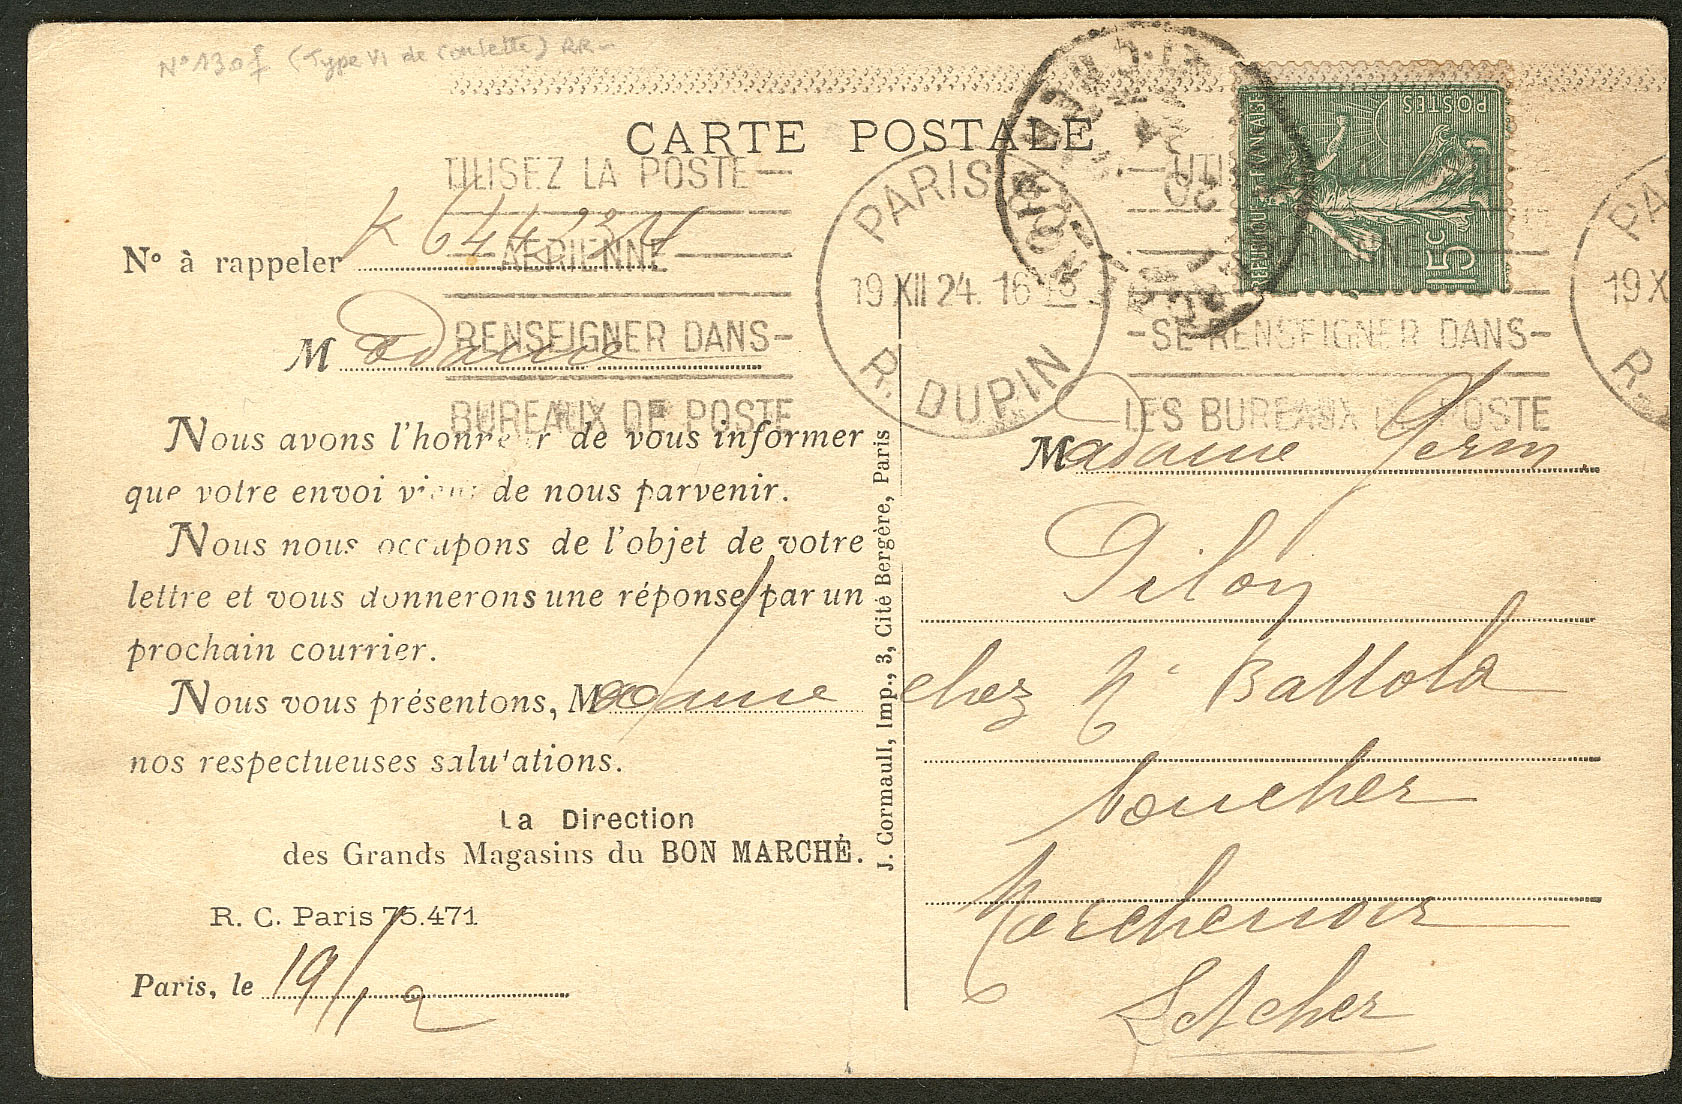 N° 130f (Type VI de roulette) RR
CARTE POSTALE
TILISEZ LA POSTE
AERIENNE
RENSEIGNER DANS
BUREAUX DE POSTE
PARIS
19 XII 24. 16
R. DUPIN
UTI
SE RENSEIGNER DANS
LES BUREAUX DE POSTE
PA
19 X
R.
MARCHENOIR
20
REPUBLIQUE FRANÇAISE
POSTES
15c
N° à rappeler K 644234
Madame
Nous avons l'honneur de vous informer
que votre envoi vient de nous parvenir.
Nous nous occupons de l'objet de votre
lettre et vous donnerons une réponse par un
prochain courrier.
Nous vous présentons, Madame
nos respectueuses salutations.
La Direction
des Grands Magasins du BON MARCHÉ.
R. C. Paris 75.471
Paris, le 19/12
J. Cormault, Imp., 3, Cité Bergère, Paris
Madame Germ
Pilon
chez Mr Battola
boucher
Marchenoir
L et cher